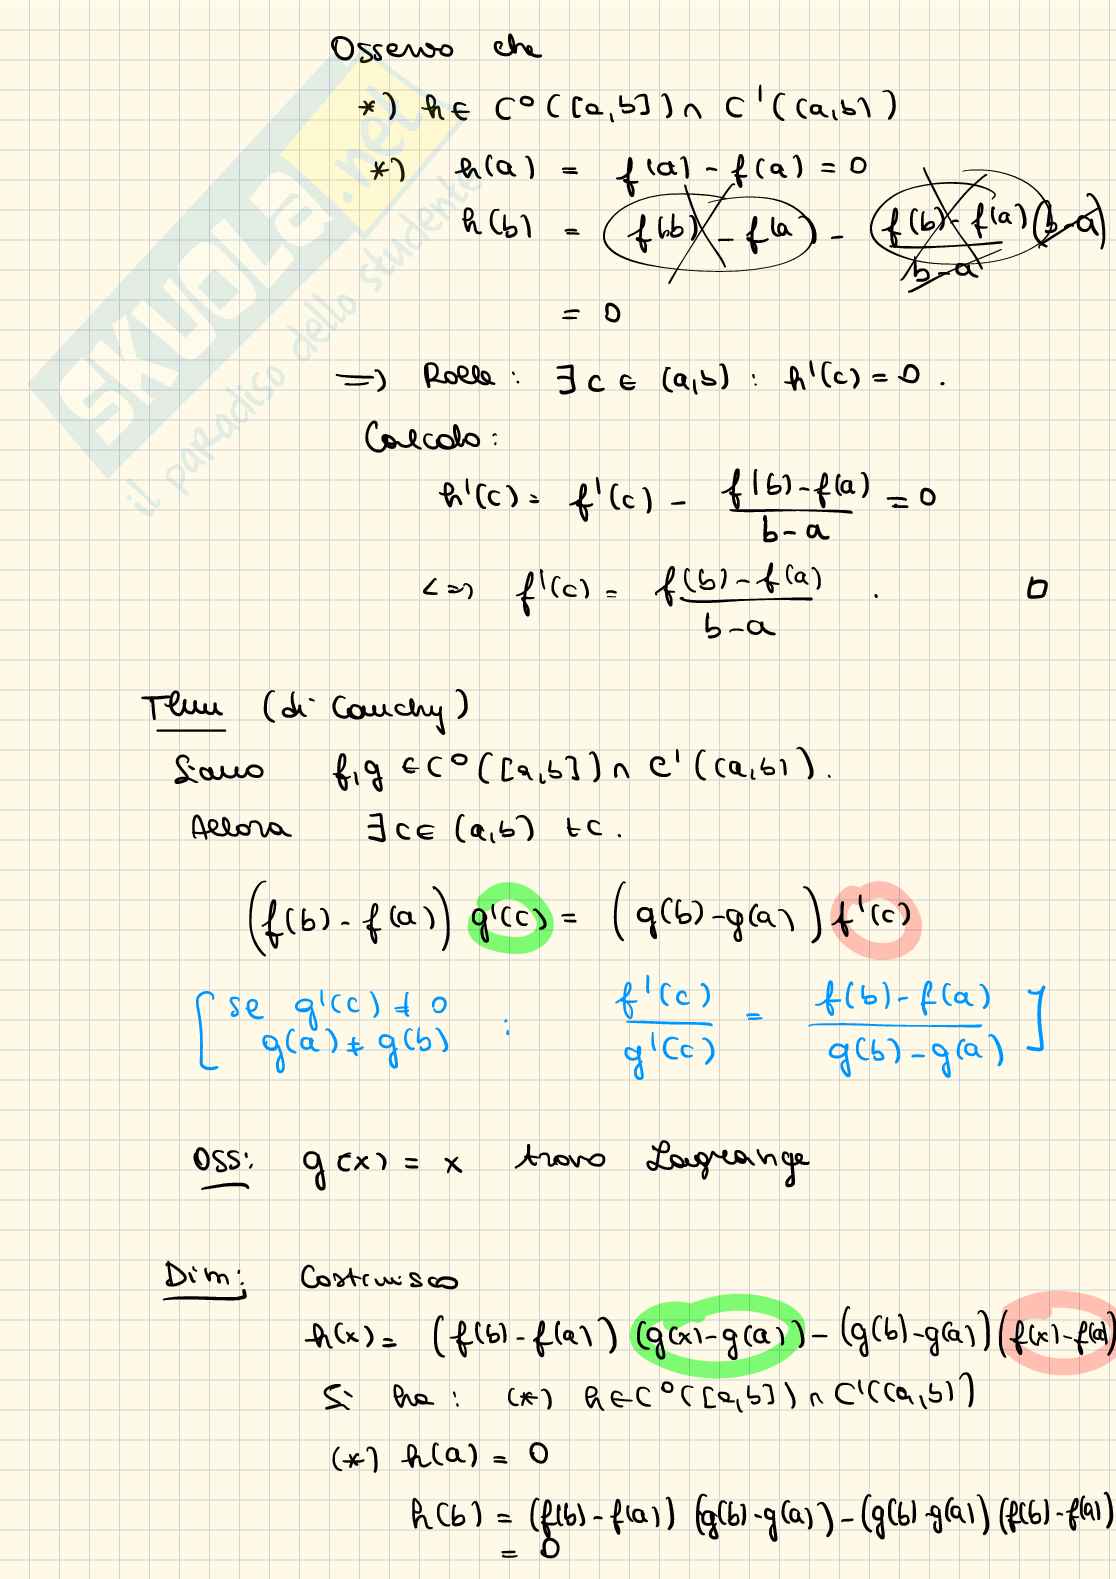 Osservo che
*) h ∈ C⁰([a,b]) ∩ C'((a,b))
*) h(a) = f(a) - f(a) = 0
h(b) = (f(b) - f(a)) - (f(b) - f(a))/(b-a) (b-a)
= 0
=> Rolle : ∃ c ∈ (a,b) : h'(c) = 0 .
Calcolo :
h'(c) = f'(c) - (f(b) - f(a))/(b-a) = 0
<=> f'(c) = (f(b) - f(a))/(b-a) . □
Thm (di Cauchy)
Siano f, g ∈ C⁰([a,b]) ∩ C'((a,b)).
Allora ∃ c ∈ (a,b) tc.
(f(b) - f(a)) g'(c) = (g(b) - g(a)) f'(c)
[ se g'(c) ≠ 0
g(a) ≠ g(b) : f'(c)/g'(c) = (f(b) - f(a))/(g(b) - g(a)) ]
Oss: g(x) = x trovo Lagrange
Dim: Costruisco
h(x) = (f(b) - f(a)) (g(x) - g(a)) - (g(b) - g(a)) (f(x) - f(a))
Si ha : (*) h ∈ C⁰([a,b]) ∩ C'((a,b))
(*) h(a) = 0
h(b) = (f(b) - f(a)) (g(b) - g(a)) - (g(b) - g(a)) (f(b) - f(a))
= 0
SKUOLA.net
il paradiso dello studente